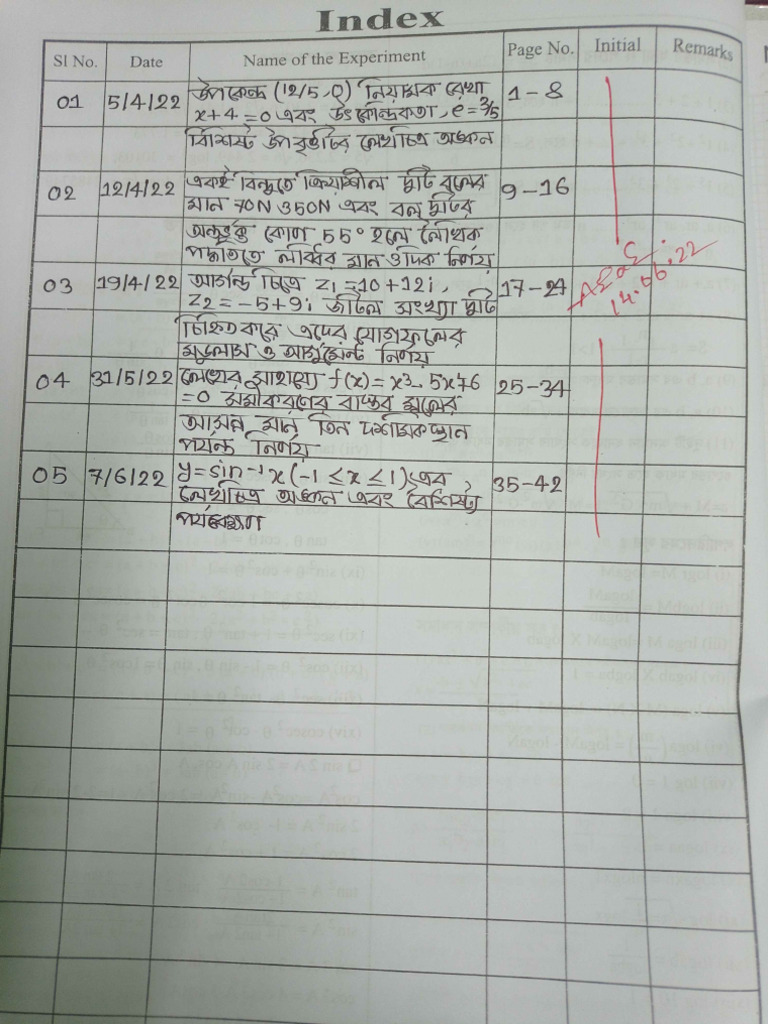 Index
Sl No. Date Name of the Experiment Page No. Initial Remarks
01 5/4/22 উপকেন্দ্র (12/5,0) নিয়ামক রেখা 1-8
x+4=0 এবং উৎকেন্দ্রিকতা, e=3/5
বিশিষ্ট উপবৃত্তটির লেখচিত্র অঙ্কন
02 12/4/22 একই বিন্দুতে ক্রিয়াশীল দুটি বলের 9-16
মান 70N ও 50N এবং বল দুটির
অন্তর্ভুক্ত কোণ 55° হলে লৈখিক
পদ্ধতিতে লব্ধির মান ও দিক নির্ণয়
03 19/4/22 আর্গন্ড চিত্রে z1=10+12i, 17-24
z2=-5+9i জটিল সংখ্যা দুটি
চিহ্নিত করে এদের যোগফলের
মডুলাস ও আর্গুমেন্ট নির্ণয়
14.06.22
04 31/5/22 লেখের সাহায্যে f(x)=x3-5x+6 25-34
=0 সমীকরণের বাস্তব মূলের
আসন্ন মান তিন দশমিক স্থান
পর্যন্ত নির্ণয়
05 7/6/22 y=sin-1x(-1≤x≤1) এর 35-42
লেখচিত্র অঙ্কন এবং বৈশিষ্ট্য
পর্যবেক্ষণ